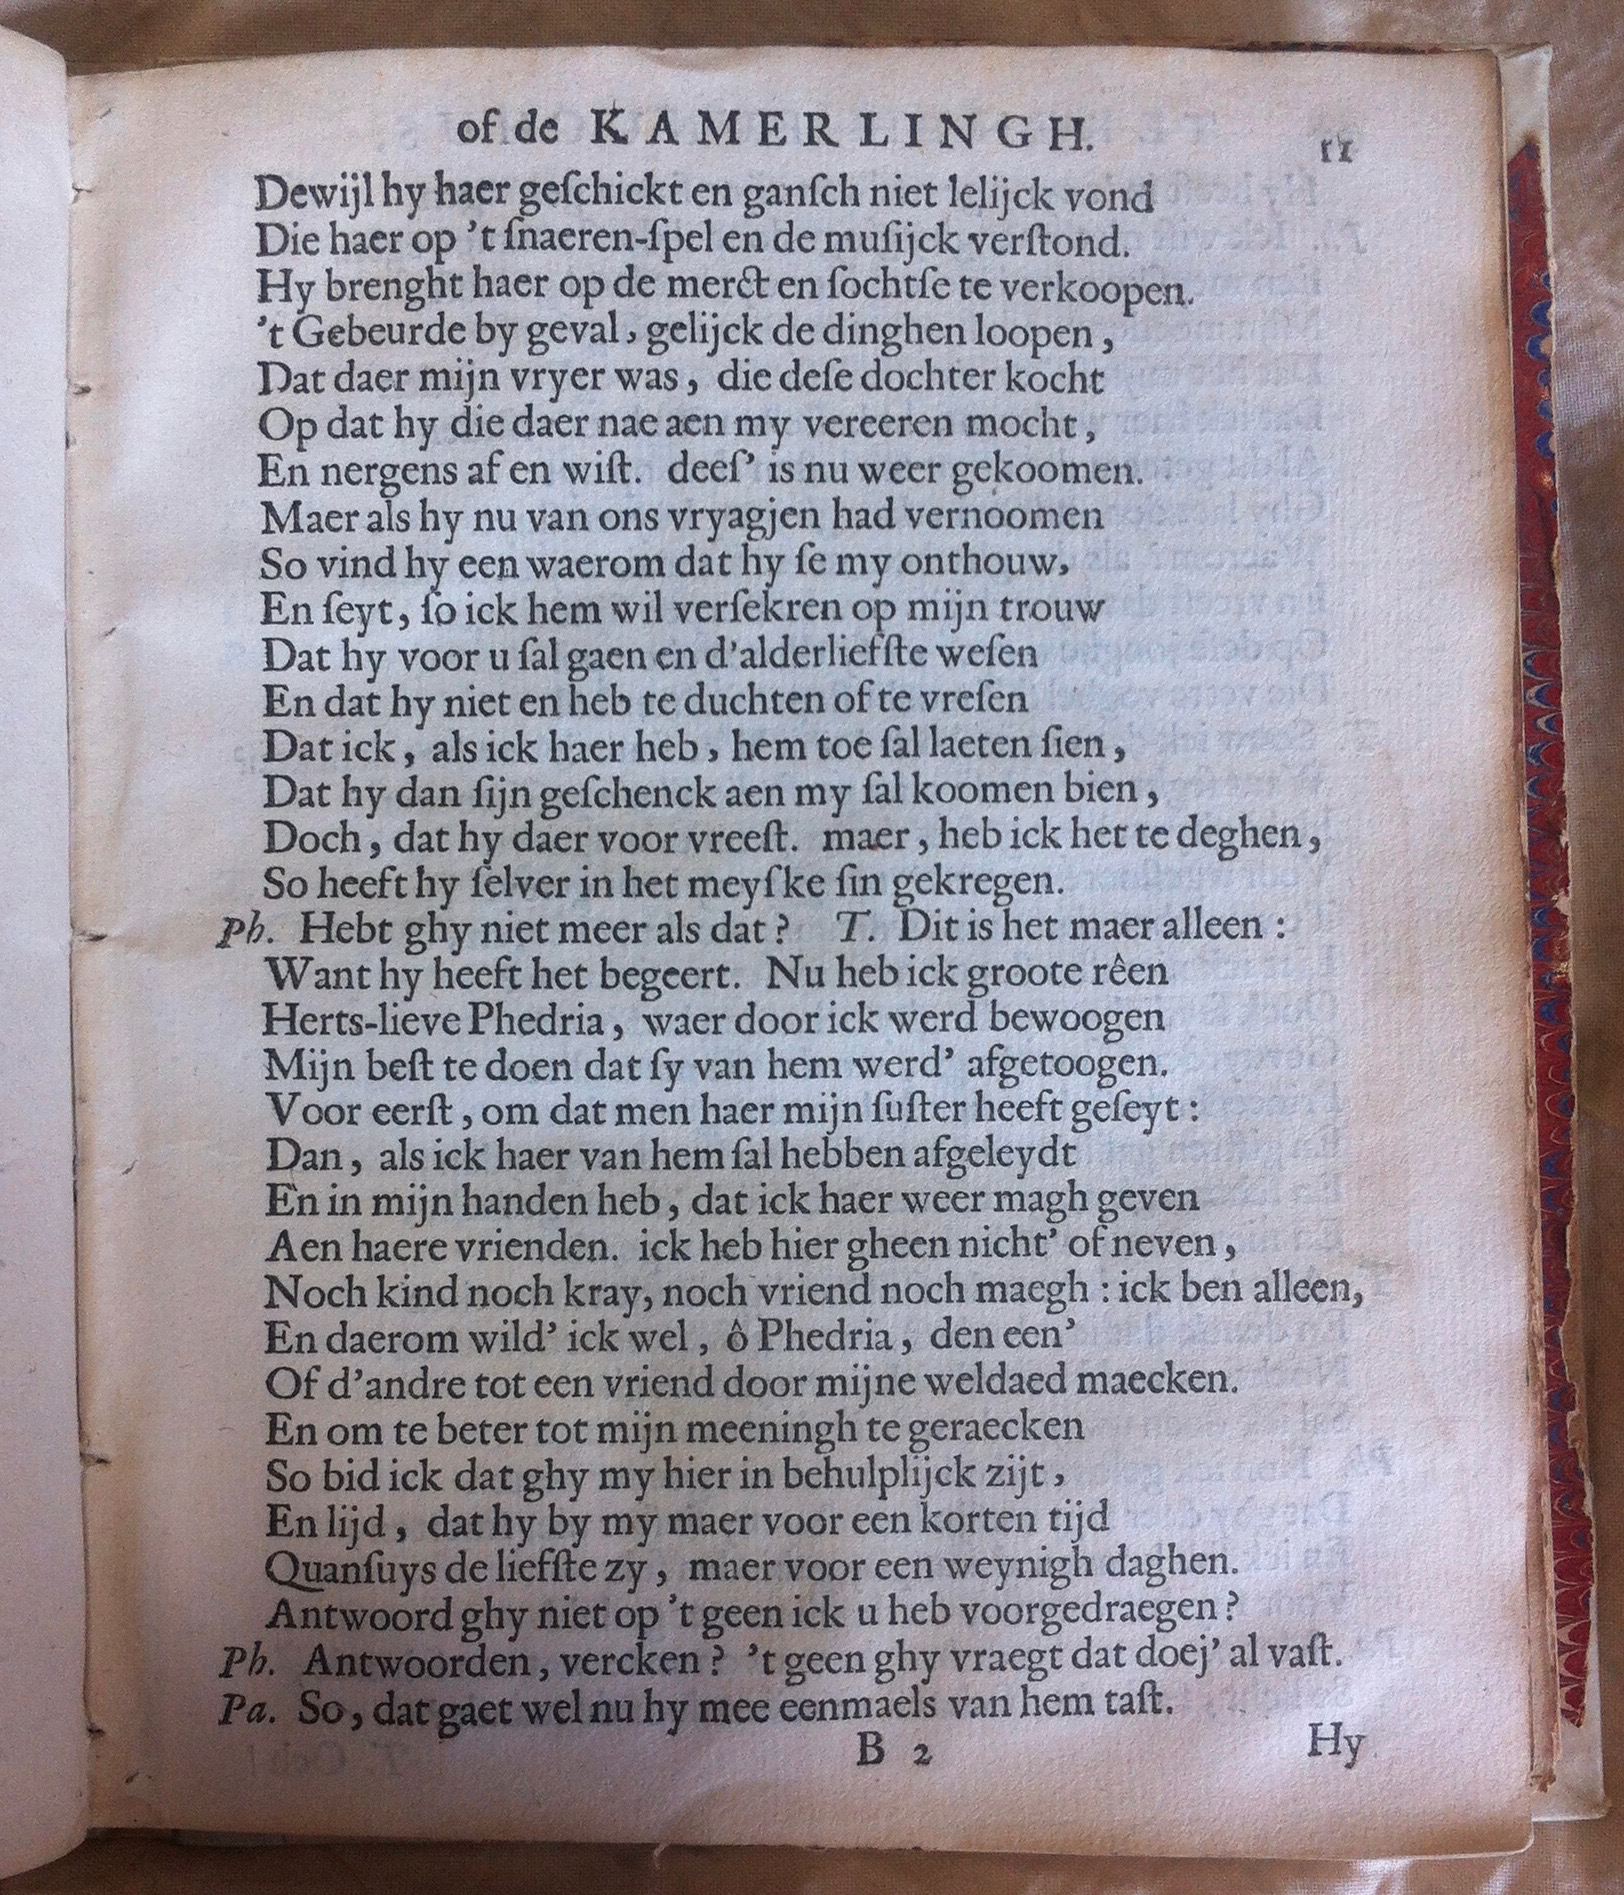 of de KAMERLINGH. 11
Dewijl hy haer geſchickt en ganſch niet lelijck vond
Die haer op 't ſnaeren-ſpel en de muſijck verſtond.
Hy brenght haer op de merct en ſochtſe te verkoopen.
't Gebeurde by geval, gelijck de dinghen loopen,
Dat daer mijn vryer was, die deſe dochter kocht
Op dat hy die daer nae aen my vereeren mocht,
En nergens af en wiſt. deeſ' is nu weer gekoomen.
Maer als hy nu van ons vryagjen had vernoomen
So vind hy een waerom dat hy ſe my onthouw,
En ſeyt, ſo ick hem wil verſekren op mijn trouw
Dat hy voor u ſal gaen en d'alderliefſte weſen
En dat hy niet en heb te duchten of te vreſen
Dat ick, als ick haer heb, hem toe ſal laeten ſien,
Dat hy dan ſijn geſchenck aen my ſal koomen bien,
Doch, dat hy daer voor vreeſt. maer, heb ick het te deghen,
So heeft hy ſelver in het meyſke ſin gekregen.
Ph. Hebt ghy niet meer als dat? T. Dit is het maer alleen:
Want hy heeft het begeert. Nu heb ick groote rêen
Herts-lieve Phedria, waer door ick werd bewoogen
Mijn beſt te doen dat ſy van hem werd' afgetoogen.
Voor eerſt, om dat men haer mijn ſuſter heeft geſeyt:
Dan, als ick haer van hem ſal hebben afgeleydt
En in mijn handen heb, dat ick haer weer magh geven
Aen haere vrienden. ick heb hier gheen nicht' of neven,
Noch kind noch kray, noch vriend noch maegh: ick ben alleen,
En daerom wild' ick wel, ô Phedria, den een'
Of d'andre tot een vriend door mijne weldaed maecken.
En om te beter tot mijn meeningh te geraecken
So bid ick dat ghy my hier in behulplijck zijt,
En lijd, dat hy by my maer voor een korten tijd
Quanſuys de liefſte zy, maer voor een weynigh daghen.
Antwoord ghy niet op 't geen ick u heb voorgedraegen?
Ph. Antwoorden, vercken? 't geen ghy vraegt dat doej' al vaſt.
Pa. So, dat gaet wel nu hy mee eenmaels van hem taſt.
B 2 Hy